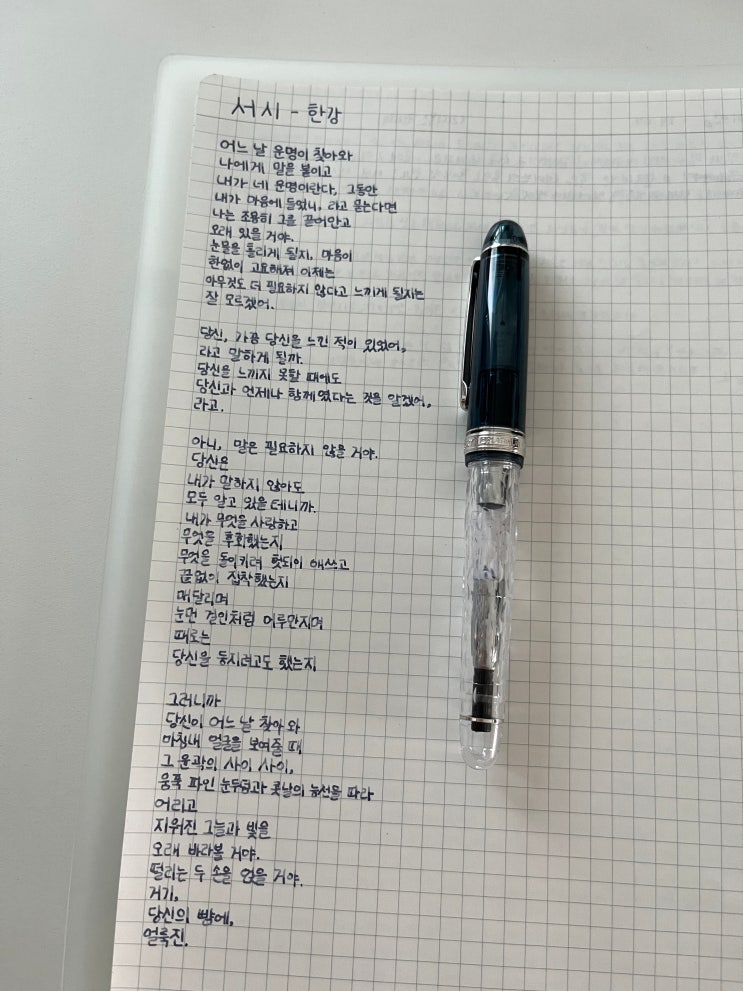 서시 - 한강
어느 날 운명이 찾아와
나에게 말을 붙이고
내가 네 운명이란다, 그동안
내가 마음에 들었니, 라고 묻는다면
나는 조용히 그를 끌어안고
오래 있을 거야.
눈물을 흘리게 될지, 마음이
한없이 고요해져 이제는
아무것도 더 필요하지 않다고 느끼게 될지는
잘 모르겠어.
당신, 가끔 당신을 느낀 적이 있었어,
라고 말하게 될까.
당신을 느끼지 못할 때에도
당신과 언제나 함께였다는 것을 알겠어,
라고.
아니, 말은 필요하지 않을 거야.
당신은
내가 말하지 않아도
모두 알고 있을 테니까.
내가 무엇을 사랑하고
무엇을 후회했는지
무엇을 돌이키려 헛되이 애쓰고
끝없이 집착했는지
매달리며
눈먼 걸인처럼 어루만지며
때로는
당신을 등지려고도 했는지
그러니까
당신이 어느 날 찾아와
마침내 얼굴을 보여줄 때
그 윤곽의 사이 사이,
움푹 파인 눈두덩과 콧날의 능선을 따라
어리고
지워진 그늘과 빛을
오래 바라볼 거야.
떨리는 두 손을 얹을 거야.
거기,
당신의 뺨에,
얼룩진.